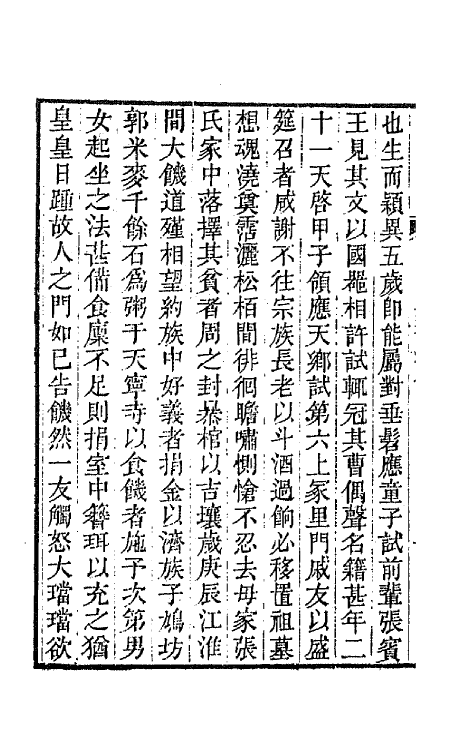 也生而穎異五歲卽能屬對垂髫應童子試前輩張賓
王見其文以國器相許試輒冠其曹偶聲名籍甚年二
十一天啓甲子領應天鄉試第六上冢里門戚友以盛
筵召者咸謝不往宗族長老以斗酒過餉必移置祖墓
想魂澆奠霑灑松栢間徘徊瞻嘯惻愴不忍去毋家張
氏家中落擇其貧者周之封𣓉棺以吉壤歲庚辰江淮
間大饑道殣相望約族中好義者捐金以濟族子鳩坊
郭米麥千餘石爲粥于天寧寺以食饑者施予次第男
女起坐之法甚備食糜不足則捐室中簪珥以充之猶
皇皇日踵故人之門如已告饑然一友觸怒大璫璫欲